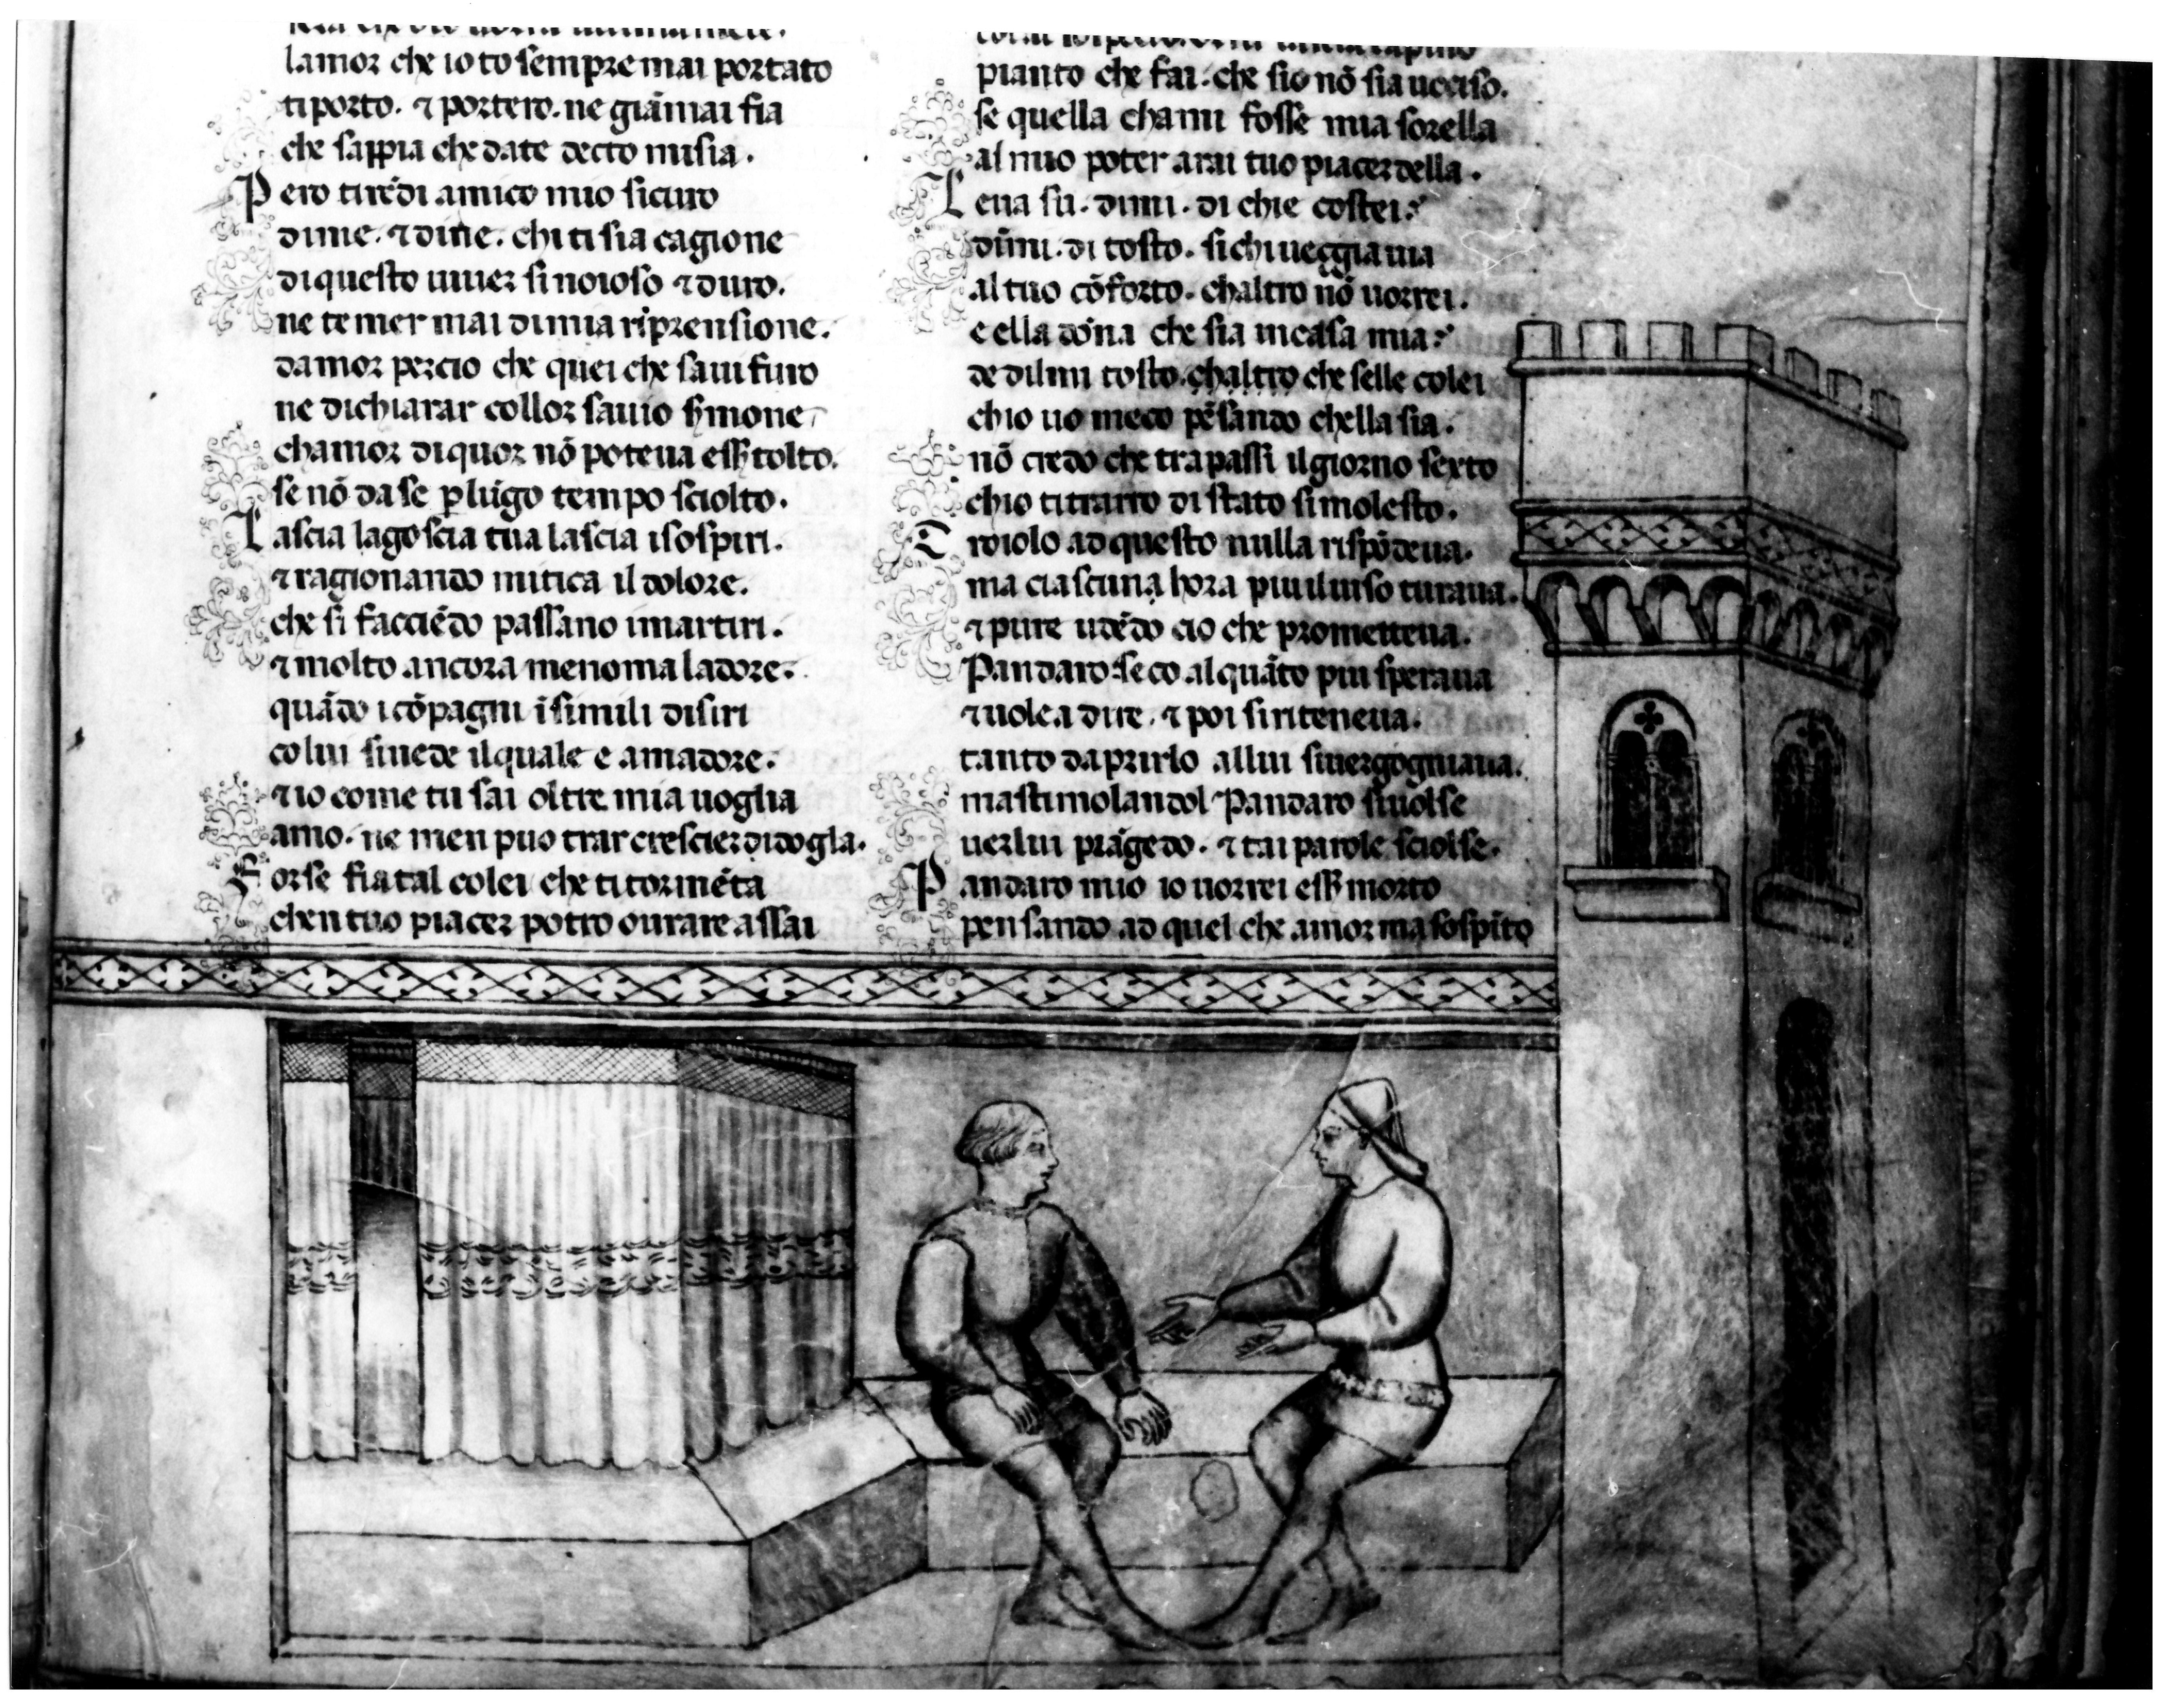 lamor che io to sempre mai portato
ti porto. ⁊ portero. ne giāmai fia
che sappia che da te decto mi sia.
Pero tirēdi amico mio sicuro
dime. ⁊ dine. chi ti sia cagione
di questo uiuer si noioso ⁊ duro.
ne temer mai di mia riprensione.
damor percio che quei che saui furo
ne dichiarar col lor sauio
chamor di quor nō poteua eſſ tolto.
se nō da se ꝑ lūgo tempo sciolto.
Lascia lagoscia tua lascia i sospiri.
⁊ ragionando mitica il dolore.
che si faccēdo passano i martiri.
⁊ molto ancora menoma ladore.
quādo i cōpagni ī simili disiri
colui si uede il quale e amadore.
⁊ io come tu sai oltre mia uoglia
amo. ne men puo trar crescier di dogla.
Forse fia tal colei che ti tormēta
chen tuo piacer potro ourare assai
pianto che fai. che sio nō sia ucciso.
se quella chami fosse mia sorella
al mio poter arai tuo piacer della.
Leua su. dimi. di chi e costei?
dimi. di tosto. si chi ueggia uia
al tuo cōforto. chaltro nō uorrei.
e ella dōna che sia in casa mia?
de dilmi tosto. chaltro che selle colei
chio uo meco pēsando chella sia.
nō credo che trapassi il giorno sexto
chio ti trarro di stato si molesto.
Troiolo ad questo nulla rispōdeua.
ma ciascuna hora piu il uiso turaua.
⁊ pure udēdo cio che prometteua.
Pandaro seco alquāto piu speraua
⁊ uolea dire. ⁊ poi si riteneua.
tanto daprirlo allui si uergogniaua.
ma stimolandol Pandaro si uolse
uer lui piāgēdo. ⁊ tai parole sciolse.
Pandaro mio io uorrei eſſ morto
pensando ad quel che amor ma sospito